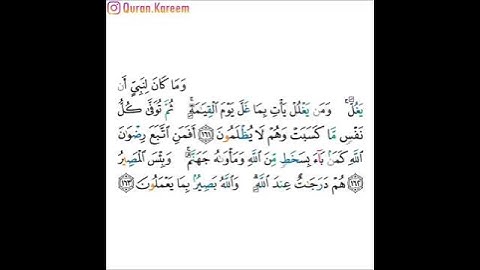 Quran.Kareem
وَمَا كَانَ لِنَبِيٍّ أَن
يَغُلَّ ۚ وَمَن يَغْلُلْ يَأْتِ بِمَا غَلَّ يَوْمَ الْقِيَامَةِ ۚ ثُمَّ تُوَفَّىٰ كُلُّ
نَفْسٍ مَّا كَسَبَتْ وَهُمْ لَا يُظْلَمُونَ ﴿١٦١﴾ أَفَمَنِ اتَّبَعَ رِضْوَانَ
اللَّهِ كَمَن بَاءَ بِسَخَطٍ مِّنَ اللَّهِ وَمَأْوَاهُ جَهَنَّمُ ۚ وَبِئْسَ الْمَصِيرُ
﴿١٦٢﴾ هُمْ دَرَجَاتٌ عِندَ اللَّهِ ۗ وَاللَّهُ بَصِيرٌ بِمَا يَعْمَلُونَ ﴿١٦٣﴾